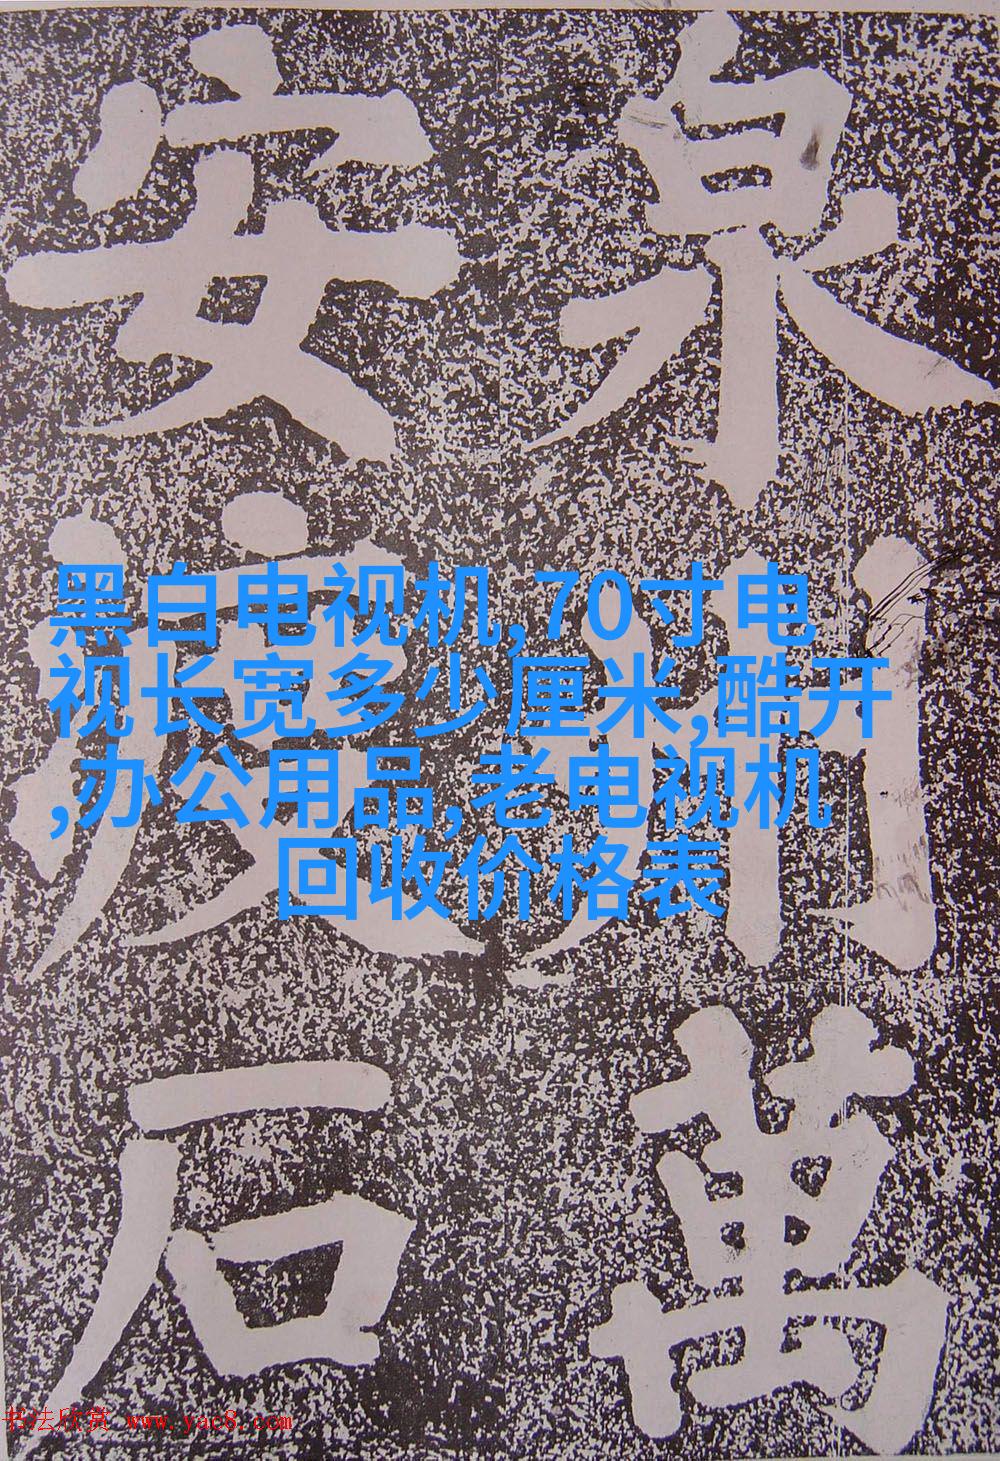 泉州萬
安渡石
黑白电视机,70寸电
视长宽多少厘米,酷开
,办公用品,老电视机
回收价格表
书法欣赏 www.yac8.com